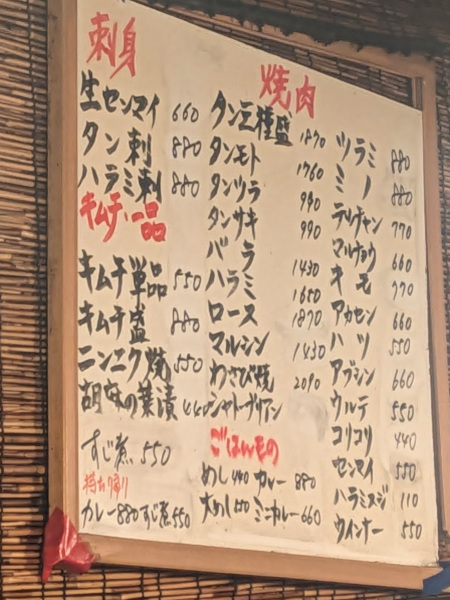 刺身
生センマイ 660
タン刺 880
ハラミ刺 880
キムチ、一品
キムチ単品 550
キムチ盛 880
ニンニク焼 550
胡麻の葉漬 440
すじ煮 550
持ち帰り
カレー880 すじ煮550
焼肉
タン三種盛 1870
タンモト 1760
タンツラ 990
タンサキ 990
バラ 1430
ハラミ 1650
ロース 1870
マルシン 1430
わさび焼 2090
シャトーブリアン
ごはんもの
めし440 カレー 880
大めし550 ミニカレー660
ツラミ 880
ミノ 880
テッチャン 770
マルチョウ 660
キモ 770
アカセン 660
ハツ 550
アブシン 660
ウルテ 550
コリコリ 440
センマイ 550
ハラミスジ 110
ウインナー 550